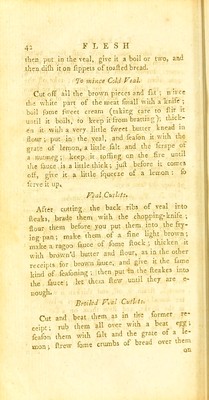 42 FLESH
then put in the veal, give it a boil or two, and
then dish it on sippets of toasted bread.
To mince Cold Veal.
Cut off all the brown pieces and fat; mince
the white part of the meat small with a knife;
boil some sweet cream (taking care to stir it
until it boils, to keep it from bratting); thick-
en it with a very little sweet butter knead in
flour; put in the veal, and season it with the
grate of lemon, a little salt and the scrape of
a nutmeg; keep it tossing on the fire until
the sauce is a little thick; just before it comes
off, give it a little squeeze of a lemon: so
serve it up.
Veal Cutlets.
After cutting the back ribs of veal into
steaks, brade them with the chopping-knife;
flour them before you put them into the fry-
ing-pan; make them of a fine light brown;
make a ragoo sauce of some stock; thicken it
with brown'd butter and flour, as in the other
receipts for brown sauce, and give it the same
kind of seasoning; then put in the steakes into
the sauce; let them stew until they are e-
nough.
Broiled Veal Cutlets.
Cut and beat them as in the former re-
ceipt; rub them all over with a beat egg;
season them with salt and the grate of a le-
mon; strew some crumbs of bread over them
on